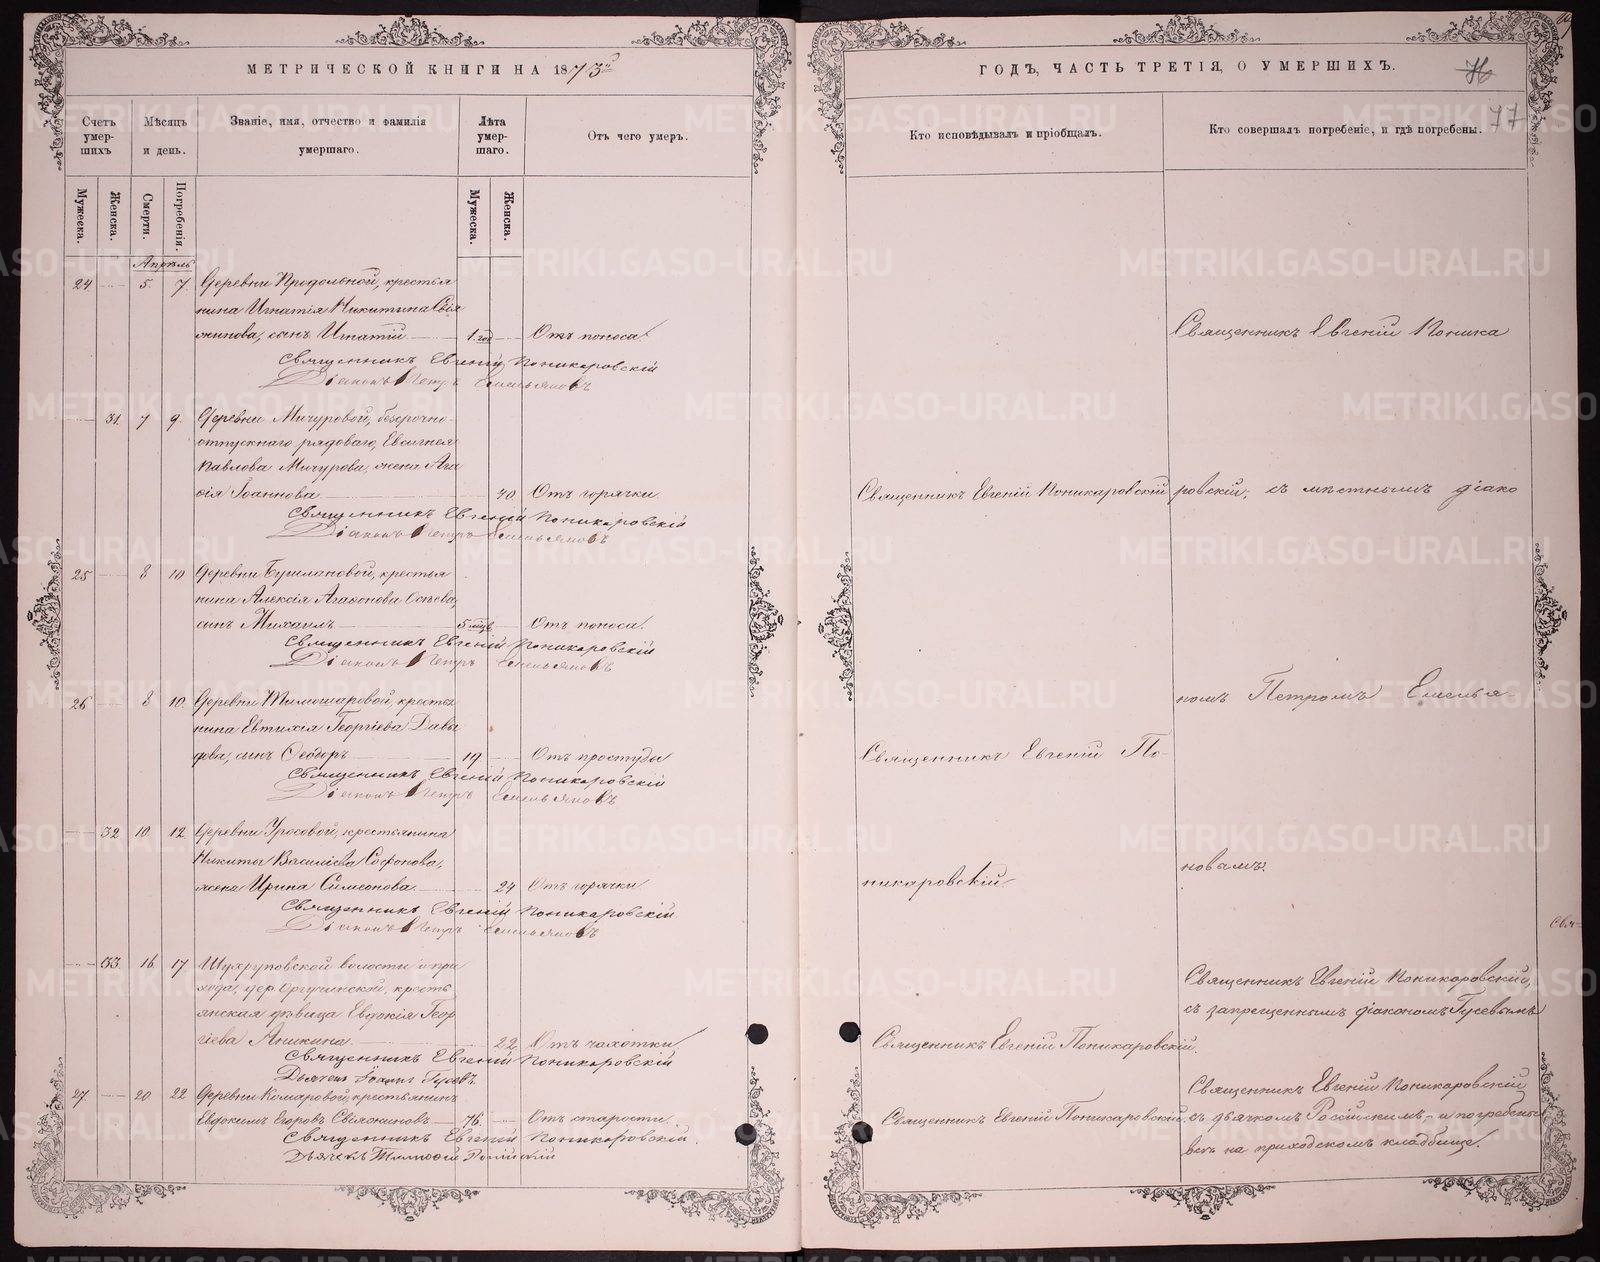 МЕТРИЧЕСКОЙ КНИГИ НА 1873й
Счетъ умер-шихъ
Мѣсяцъ и день.
Званіе, имя, отчество и фамилія умершаго.
Лѣта умер-шаго.
Отъ чего умеръ.
Мужеска.
Женска.
Смерти.
Погребенія.
Мужеска.
Женска.
Апрѣль
24 5. 7. Деревни Продольной, крестья
нина Игнатія Никитина Свія
жинова, сынъ Игнатій 1. год Отъ поноса.
Священникъ Евгеній Поникаровскій
Діаконъ Петръ Емельяновъ
31. 7 9. Деревни Мичуровой, безсрочно-
отпускнаго рядоваго, Евсигнея
Павлова Мичурова, жена Ага
ѳія Іоаннова 40. Отъ горячки.
Священникъ Евгеній Поникаровскій
Діаконъ Петръ Емельяновъ
25 8 10 Деревни Бушлановой, крестья
нина Алексія Агаѳонова Осѣева,
сынъ Михаилъ 5 мцв Отъ поноса.
Священникъ Евгеній Поникаровскій
Діаконъ Петръ Емельяновъ
26 8 10. крестья
нина Евтихія Георгіева Давы
дова, сынъ Ѳеодоръ 19 Отъ простуды
Священникъ Евгеній Поникаровскій
Діаконъ Петръ Емельяновъ
32 10. 12. Деревни Уросовой, крестьянина
Никиты Василіева Софонова,
жена Ирина Симеонова 24 Отъ горячки
Священникъ Евгеній Поникаровскій.
Діаконъ Петръ Емельяновъ
33. 16. 17 волости и при
хода, дер. крестъ
янская дѣвица Евдокія Геор
гіева Аникина 22 Отъ чахотки.
Священникъ Евгеній Поникаровскій
Дьячекъ Іоаннъ Гусевъ.
27. 20 22. Деревни Комаровой, крестьянинъ
Евдокимъ Егоровъ Свіяжиновъ 76. Отъ старости.
Священникъ Евгеній Поникаровскій.
Дьячекъ Тимоѳей Россійскій
ГОДЪ, ЧАСТЬ ТРЕТІЯ, О УМЕРШИХЪ.
76
77
Кто исповѣдывалъ и пріобщалъ.
Кто совершалъ погребеніе, и гдѣ погребены.
Священникъ Евгеній Поника
Священникъ Евгеній Поникаровскій
ровскій, съ мѣстнымъ діако
номъ Петромъ Емелья-
Священникъ Евгеній По-
новымъ.
никаровскій.
Свя-
Священникъ Евгеній Поникаровскій,
съ запрещеннымъ діакономъ Гусевымъ
Священникъ Евгеній Поникаровскій.
Священникъ Евгеній Поникаровскій
Священникъ Евгеній Поникаровскій.
съ дьячкомъ Россійскимъ, и погребены
всѣ на приходскомъ кладбищѣ.
METRIKI.GASO-URAL.RU